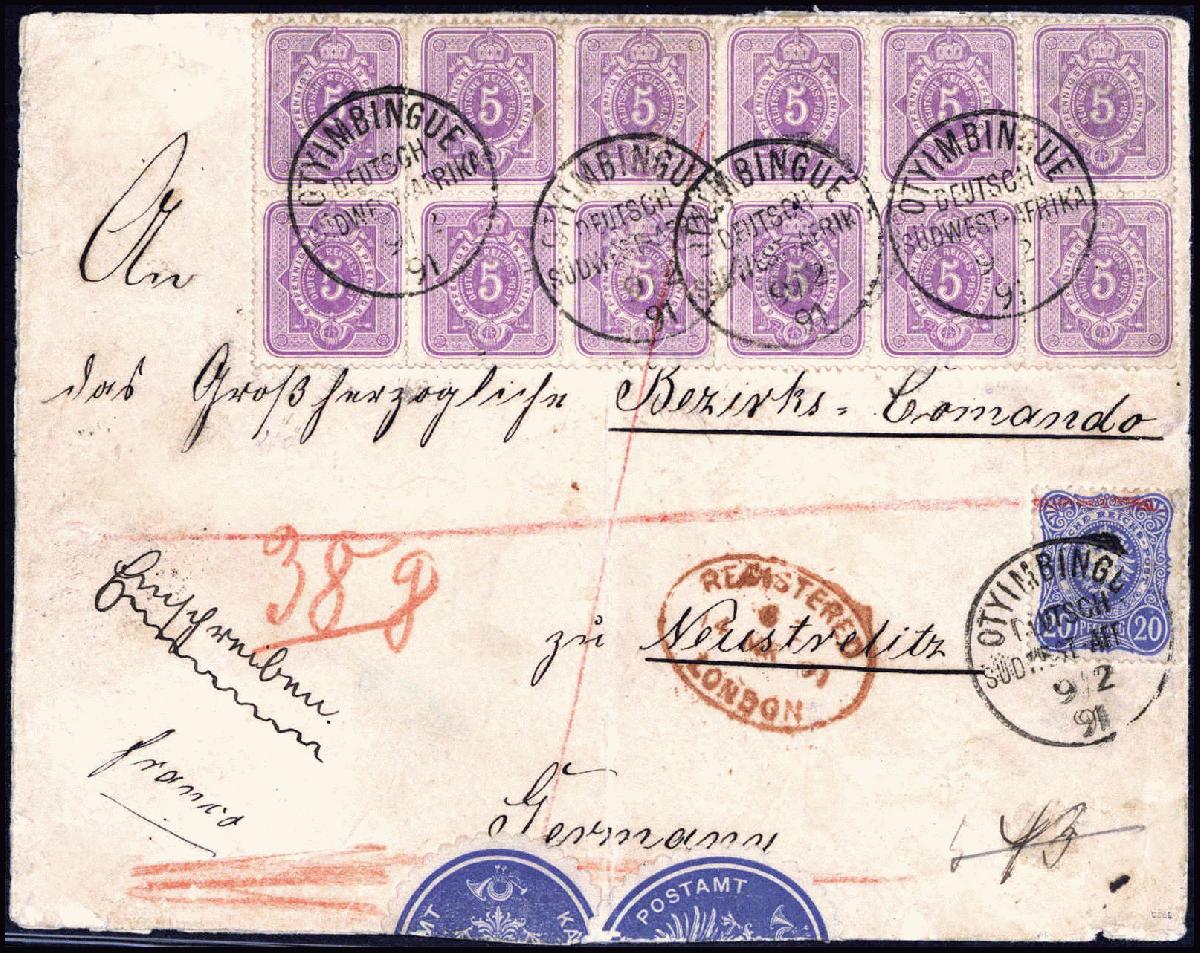 5 5 5 5 5 5
OTYIMBINGUE
DEUTSCH
SÜDWEST-AFRIKA
91
OTYIMBINGUE
DEUTSCH
SÜDWEST-AFRIKA
91
OTYIMBINGUE
DEUTSCH
SÜDWEST-AFRIKA
9 2
91
OTYIMBINGUE
DEUTSCH
SÜDWEST-AFRIKA
9 2
91
5 5 5 5 5 5
An
das Großherzogliche Bezirks-Comando
38 g
Einschreiben
REGISTERED
LONDON
zu Neustrelitz
20 PFENNIG 20
OTYIMBINGUE
DEUTSCH
SÜDWEST-AFR
9/2
91
franco
Germany
POSTAMT